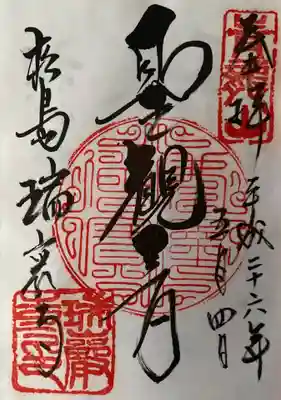 奉拝
平成二十六年
五月四日
聖観音
松島瑞巌寺
瑞巌